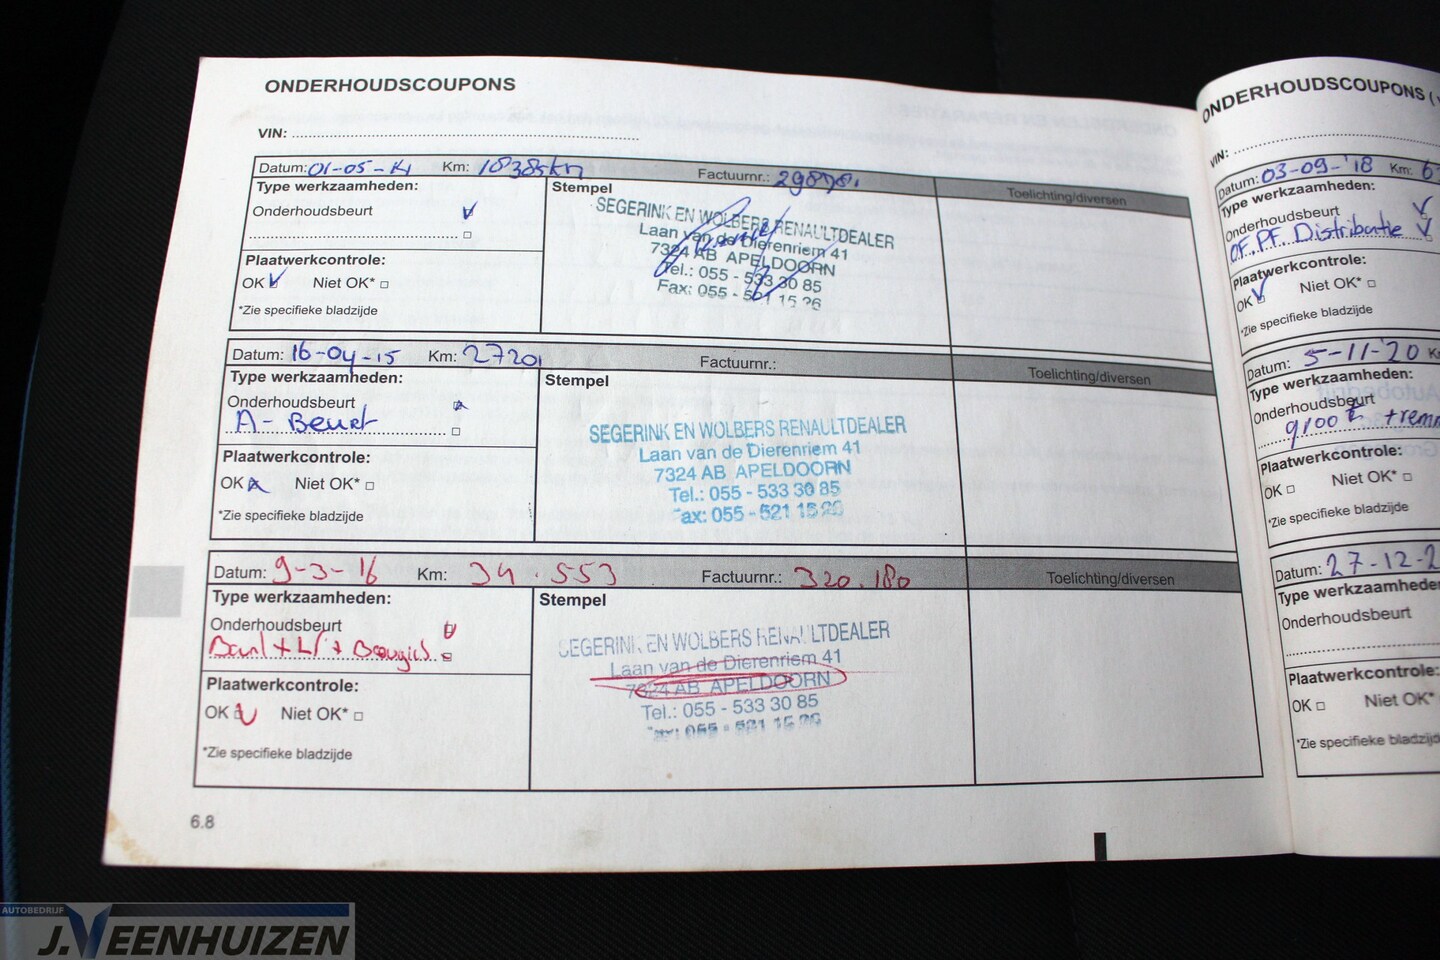 ONDERHOUDSCOUPONS
VIN:
Datum: 01-05-14 Km: 18385km Factuurnr.: Toelichting/diversen
Type werkzaamheden:
Onderhoudsbeurt
Plaatwerkcontrole:
OK Niet OK*
*Zie specifieke bladzijde
Stempel
SEGERINK EN WOLBERS RENAULTDEALER
Laan van de Dierenriem 41
7324 AB APELDOORN
Tel.: 055 - 533 30 85
Fax: 055 - 521 15 26
Datum: 16-04-15 Km: 27201 Factuurnr.: Toelichting/diversen
Type werkzaamheden:
Onderhoudsbeurt
A- Beurt
Plaatwerkcontrole:
OK Niet OK*
*Zie specifieke bladzijde
Stempel
SEGERINK EN WOLBERS RENAULTDEALER
Laan van de Dierenriem 41
7324 AB APELDOORN
Tel.: 055 - 533 30 85
Fax: 055 - 521 15 26
Datum: 9-3-16 Km: 34.553 Factuurnr.: 320.180 Toelichting/diversen
Type werkzaamheden:
Onderhoudsbeurt
Plaatwerkcontrole:
OK Niet OK*
*Zie specifieke bladzijde
Stempel
SEGERINK EN WOLBERS RENAULTDEALER
Laan van de Dierenriem 41
7324 AB APELDOORN
Tel.: 055 - 533 30 85
6.8
ONDERHOUDSCOUPONS (
VIN:
Datum: 03-09-'18 Km:
Type werkzaamheden:
Onderhoudsbeurt
OF, PF, Distributie
Plaatwerkcontrole:
OK Niet OK*
*Zie specifieke bladzijde
Datum: 5-11-'20
Type werkzaamheden:
Onderhoudsbeurt
Plaatwerkcontrole:
OK Niet OK*
*Zie specifieke bladzijde
Datum: 27-12-2
Type werkzaamheden:
Onderhoudsbeurt
Plaatwerkcontrole:
OK Niet OK*
*Zie specifieke bladzijde
AUTOBEDRIJF
J. VEENHUIZEN